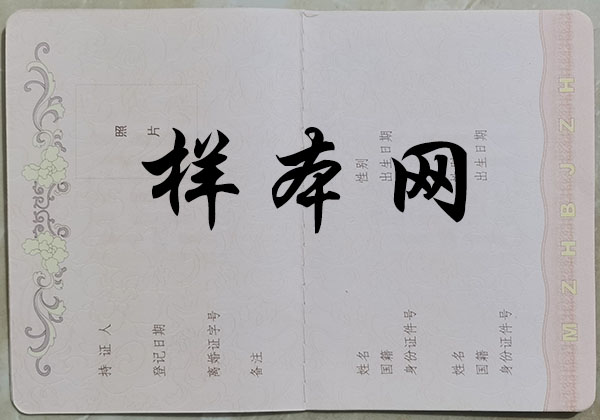 样本网
照 片
持 证 人
登记日期
离婚证字号
备注
姓名
性别
国籍
出生日期
身份证件号
姓名
国籍
出生日期
身份证件号
MZHBJZH